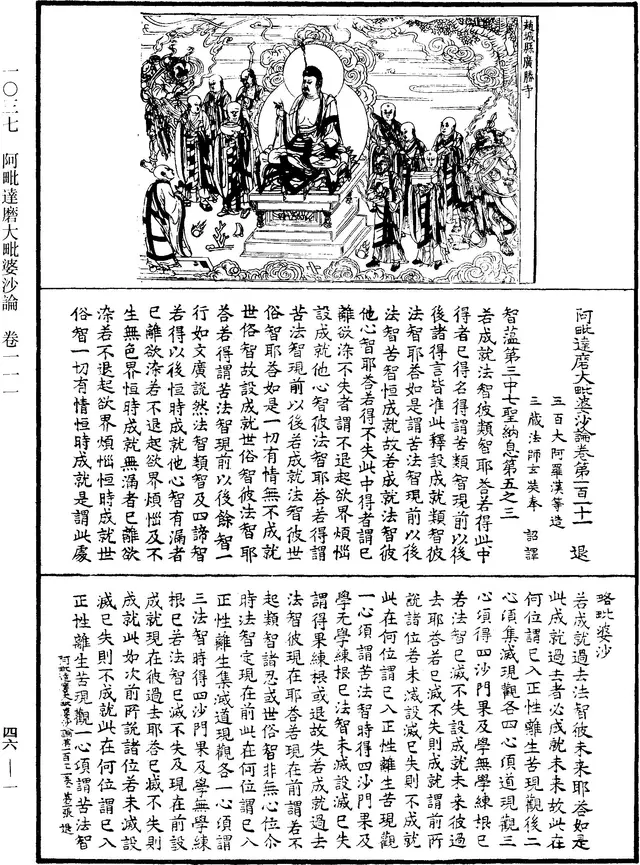 趙城縣廣勝寺
阿毗達磨大毗婆沙論卷第一百一十一 退
五百大阿羅漢等造
三藏法師玄奘奉 詔譯
智蘊第三中七聖納息第五之三
若成就法智彼類智耶荅若得此中
得者已得名得謂苦類智現前以後
後諸得言皆准此釋設成就類智彼
法智耶荅如是謂苦法智現前以後
法智苦智恒成就故若成就法智彼
他心智耶荅若得不失此中得者謂已
離欲染不失者謂不退起欲界煩惱
設成就他心智彼法智耶荅若得謂
苦法智現前以後若成就法智彼世
俗智耶荅如是一切有情無不成就
世俗智故設成就世俗智彼法智耶
荅若得謂苦法智現前以後餘智一
行如文廣說然法智類智及四諦智
若得以後恒時成就他心智有漏者
已離欲染若不退起欲界煩惱及不
生無色界恒時成就無漏者已離欲
染若不退起欲界煩惱恒時成就世
俗智一切有情恒時成就是謂此處
略毗婆沙
若成就過去法智彼未來耶荅如是
此成就過去者必成就未來故此在
何位謂已入正性離生苦現觀後二
心頃集滅現觀各四心頃道現觀三
心頃得四沙門果及學無學練根已
若法智已滅不失設成就未來彼過
去耶荅若已滅不失則成就謂前所
說諸位若未滅設滅已失則不成就
此在何位謂已入正性離生苦現觀
一心頃謂苦法智時得四沙門果及
學无學練根已法智未滅設滅已失
謂得果練根或退故失若成就過去
法智彼現在耶荅若現在前謂若不
起類智諸忍或世俗智非無心位尒
時法智定現在前此在何位謂已入
正性離生集滅道現觀各一心頃謂
三法智時得四沙門果及學無學練
根已若法智已滅不失及現在前設
成就現在彼過去耶荅若已滅不失則
成就此如次前所說諸位若未滅設
滅已失則不成就此在何位謂已入
正性離生苦現觀一心頃謂苦法智
一〇三七 阿毗達磨大毗婆沙論 卷一一一
四六—一